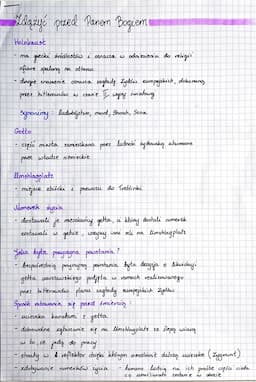 Zdążyć przed Panem Bogiem
Holokaust
- ma grecki źródłosłów i oznacza w odniesieniu do religii
ofiarę spalaną na ołtarzu
- drugie znaczenie oznacza zagładę Żydów europejskich, dokonaną
przez hitlerowców w czasie II wojny światowej
Synonimy: ludobójstwo, mord, Shoah, Szoa
Getto
- część miasta zamieszkana przez ludność żydowską utworzona
przez władze niemieckie
Umschlagplatz
- miejsce zbiórki i przewozu do Treblinki
Numerek życia
- dostawali je mieszkańcy getta, a którzy dostali numerek
zostawali w getcie, wszyscy inni szli na Umschlagplatz
Jaka była przyczyna powstania?
- Bezpośrednią przyczyną powstania była decyzja o likwidacji
getta warszawskiego podjęta w ramach realizowanego
przez hitlerowców planu zagłady europejskich Żydów
Sposób ratowania się przed śmiercią:
- ucieczka kanałami z getta
- dobrowolne zgłoszenie się na Umschlagplatz ze ślepą wiarą
w to, że jadą do pracy
- strzały w reflektor dzięki którym umożliwić dalszą ucieczkę (Zygmunt)
- zdobywanie numerków życia